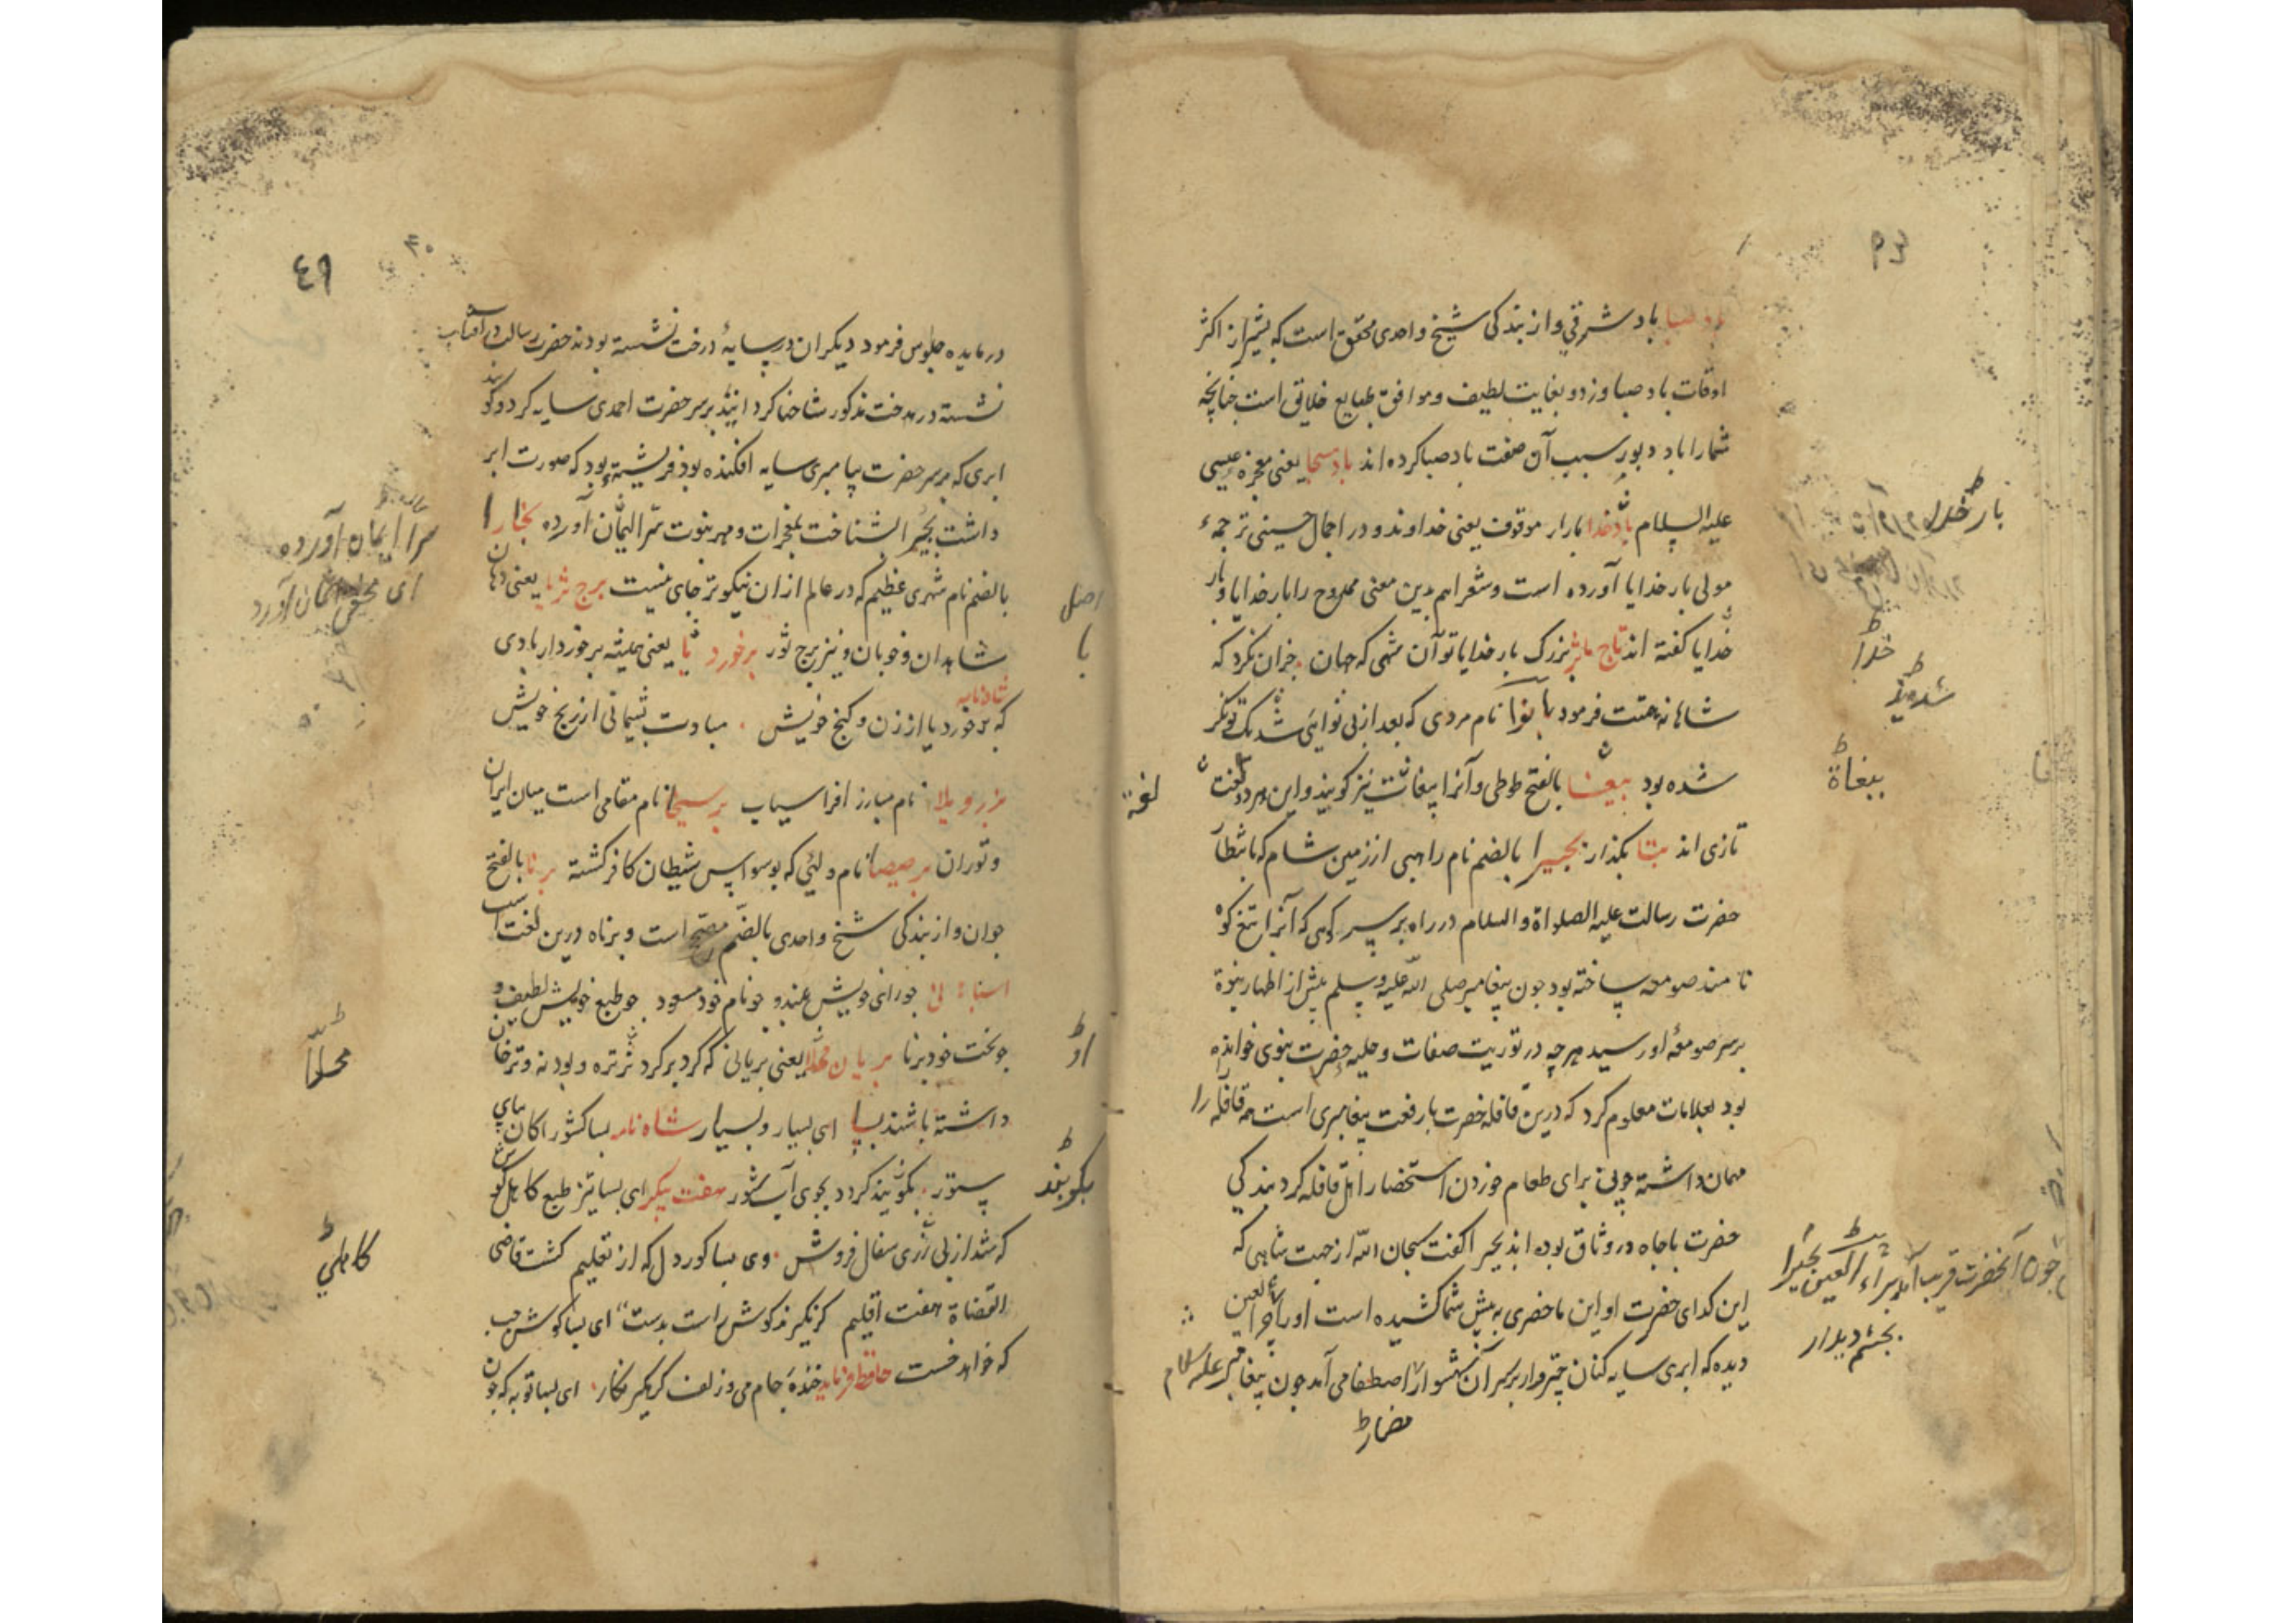 باد صبا باد شرقی و از بندگی شیخ واحدی محقق است که بیشتر از اکثر
اوقات باد صبا وزد و بغایت لطیف و موافق طبایع خلایق است چنانچه
شمارا باد دبور سبب آن صفت باد صبا کرده اند باد مسیحا یعنی معجزه عیسی
علیه السلام بارخدا بارار موقوف یعنی خداوند و در اجمال حسینی ترجمهٔ
مولی بار خدایا آورده است و شعرا هم بدین معنی ممدوح را بار خدایا و بار
خدایا گفته اند تاج مآثر بزرگ بار خدایا تو آن شهی که جهان
شاهانه همت فرمود بانوا نام مردی که بعد از بی نوایی تونگر
شده بود ببغا بالفتح طوطی و آنرا ببغاث نیز گویند و این هر دو لغت
تازی اند بتا بگذار بحیرا بالضم نام راهبی از زمین شام که بانتظار
حضرت رسالت علیه الصلواة والسلام در راه بر سر کوهی که آنرا تیغ کوه
نامند صومعه ساخته بود چون پیغامبر صلی الله علیه وسلم پیش از اظهار نبوة
بر سر صومعهٔ او رسید هرچه در توریت صفات و حلیه حضرت نبوی خوانده
بود بعلامات معلوم کرد که درین قافله حضرت بارفعت پیغامبری است همه قافله را
مهمان داشته چون برای طعام خوردن استحضار اهل قافله کردند بندگی
حضرت باجاه در وثاق بوده اند بحیرا گفت سبحان الله از جهت شاهی که
این گدای حضرت او این ماحضری به پیش شما کشیده است او را
دیده که ابری سایه کنان چتروار بر سر آن شهسوار اصطفا می آمد چون پیغامبر علیه السلام
بار خدا
خدا
شده یک
ببغاة
لغة
چون آنحضرت قریب آمد براء العین بحیرا
بچشم دیدار
مضار
٤٩
در مایده جلوس فرمود دیگران در سایهٔ درخت نشسته بودند حضرت رسالت در آفتاب
نشسته درخت مذکور شاخها گردانید بر سر حضرت احمدی سایه کرد و گویند
ابری که بر سر حضرت پیامبری سایه افکنده بود فریشته بود که صورت ابر
داشت بحیرا شناخت بمعجزات و مهر نبوت سرا ایمان آورده بخارا
بالضم نام شهری عظیم که در عالم از ان نیکوتر جای نیست برج ثریا یعنی دهان
شاهدان و خوبان و نیز برج ثور برخوردیا یعنی همیشه برخوردار بادی
شاه نامه
که برخوردیا از زن و گنج خویش مبادت پشیمانی از رنج خویش
برزویلا نام مبارز افراسیاب برسیحا نام مقامی است میان ایران
و توران برصیصا نام ولئی که بوسواس شیطان کافر گشته برنا بالفتح
جوان و از بندگی شیخ واحدی بالضم مصحح است و برناه درین لغت است
چو رای خویش بلند و چو نام خود مسعود چو طبع خویش لطیف و
چو بخت خود برنا بریان محلا یعنی بریانی که گرد بر گرد تره و پودنه و ترخان
داشته باشند بسا ای بسیار و بسیار شاه نامه بسا کشورا کان بپای
ستور بکوبند گردد بجوی آب شور هفت پیکر ای بسا تیز طبع کاهل کوش
که شد از بی زری سفال فروش وی بسا کور دل که از تعلیم گشت قاضی
القضاة هفت اقلیم
که خواهد خست حافظ فرماید خندهٔ جام می و زلف گره گیر نگار ای بسا توبه که چون
سرا ایمان آورده
اصل
با
محلا
بکوبند
کاهلی